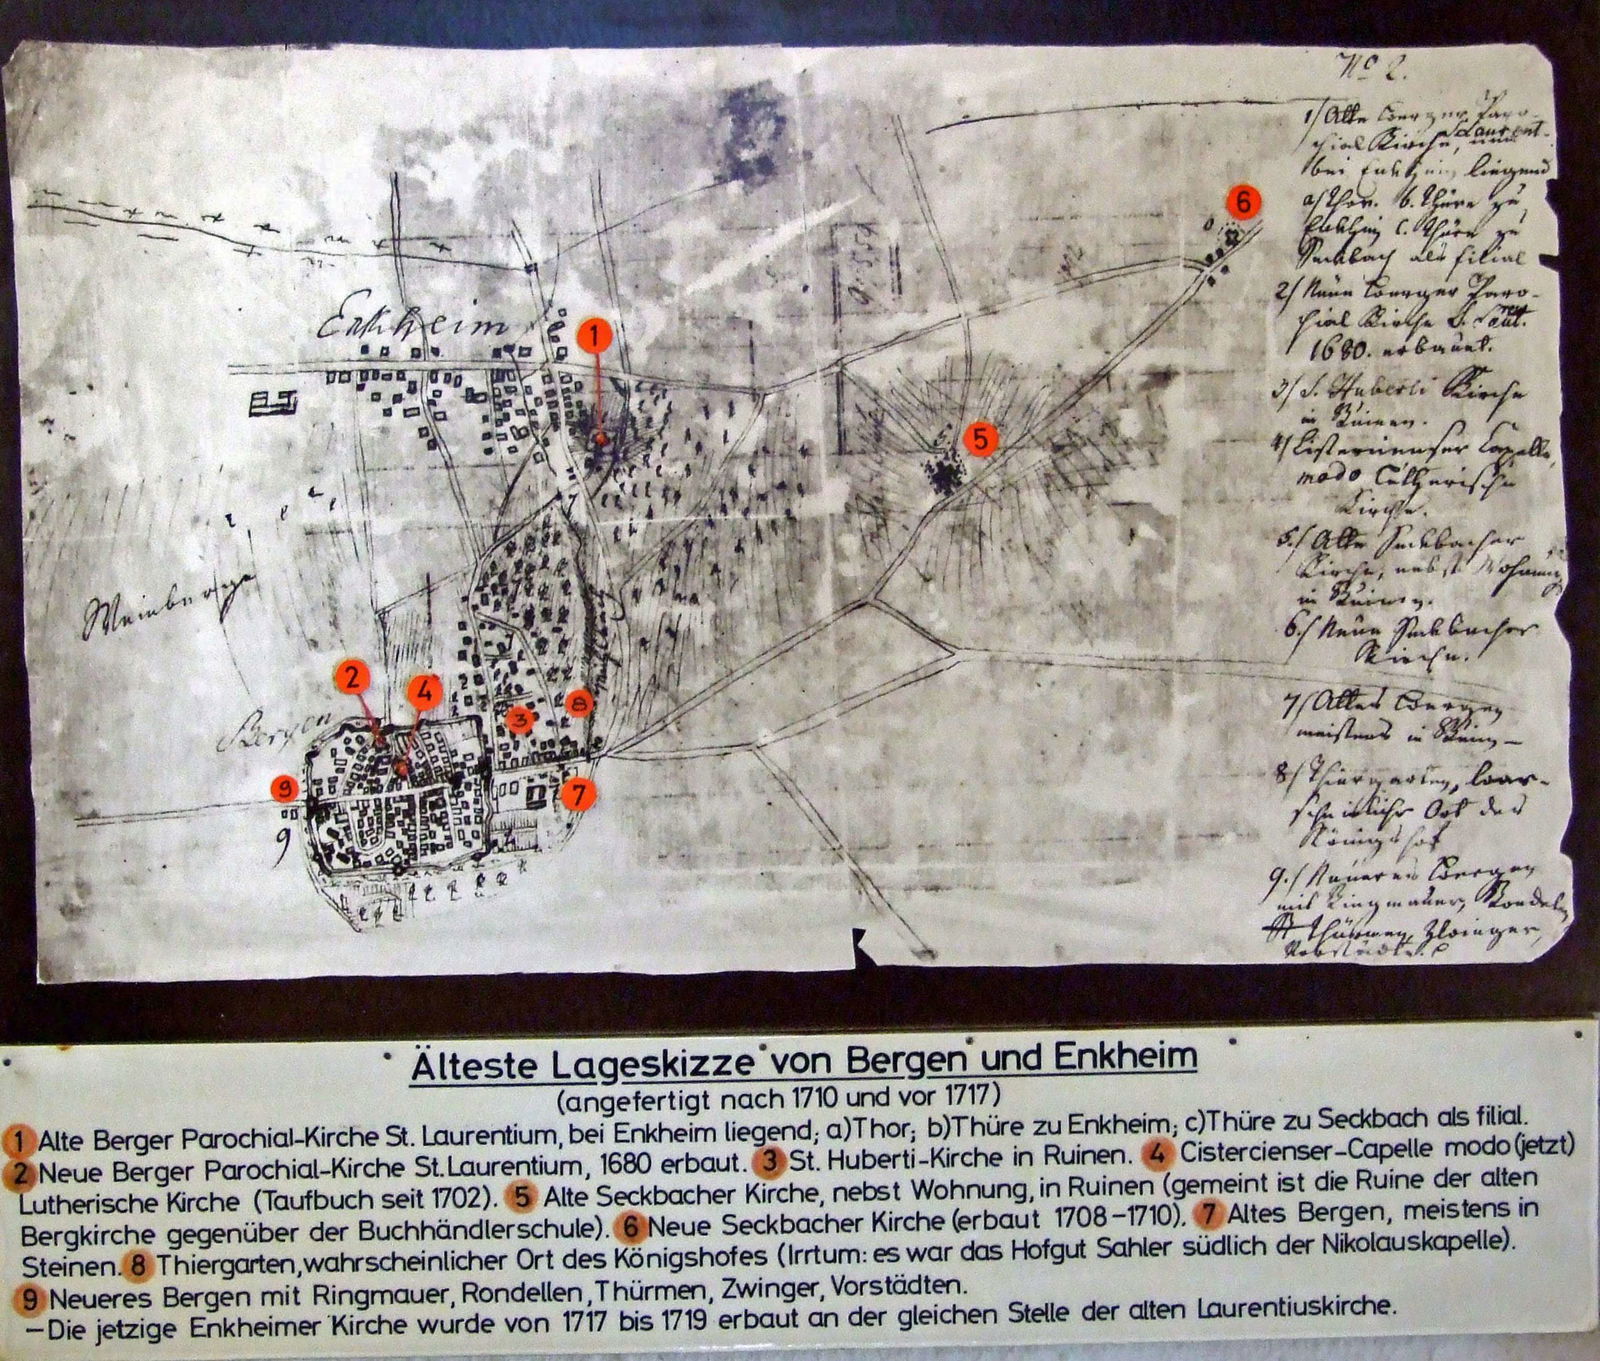 Nº 2.
1/ Alte Berger Paro-
chial Kirche, Laurent.
bei Enkheim liegend
a/ Thor. b. Thüre zu
Enkheim c. Thüre zu
Seckbach als filial
2/ Neue Berger Paro-
chial Kirche S. Laurent.
1680. erbauet.
3/ S. Huberti Kirche
in Ruinen.
4/ Cistercienser Capelle,
modo Lutherische
Kirche.
5./ Alte Seckbacher
Kirche, nebst Wohnung
in Ruinen.
6./ Neue Seckbacher
Kirche.
7/ Altes Bergen
meistens in
8/ Thiergarten, wahr-
scheinlicher Ort des
Königshof
9./ Neueres Bergen
mit Ringmauer, Rondelen,
Thürmen, Zwinger,
Vorstädte.
Enkheim
Weinberge
Bergen
1
2
3
4
5
6
7
8
9
9
Älteste Lageskizze von Bergen und Enkheim
(angefertigt nach 1710 und vor 1717)
1 Alte Berger Parochial-Kirche St. Laurentium, bei Enkheim liegend; a)Thor; b)Thüre zu Enkheim; c)Thüre zu Seckbach als filial.
2 Neue Berger Parochial-Kirche St. Laurentium, 1680 erbaut. 3 St. Huberti-Kirche in Ruinen. 4 Cistercienser-Capelle modo (jetzt)
Lutherische Kirche (Taufbuch seit 1702). 5 Alte Seckbacher Kirche, nebst Wohnung, in Ruinen (gemeint ist die Ruine der alten
Bergkirche gegenüber der Buchhändlerschule). 6 Neue Seckbacher Kirche (erbaut 1708-1710). 7 Altes Bergen, meistens in
Steinen. 8 Thiergarten, wahrscheinlicher Ort des Königshofes (Irrtum: es war das Hofgut Sahler südlich der Nikolauskapelle).
9 Neueres Bergen mit Ringmauer, Rondellen, Thürmen, Zwinger, Vorstädten.
–Die jetzige Enkheimer Kirche wurde von 1717 bis 1719 erbaut an der gleichen Stelle der alten Laurentiuskirche.